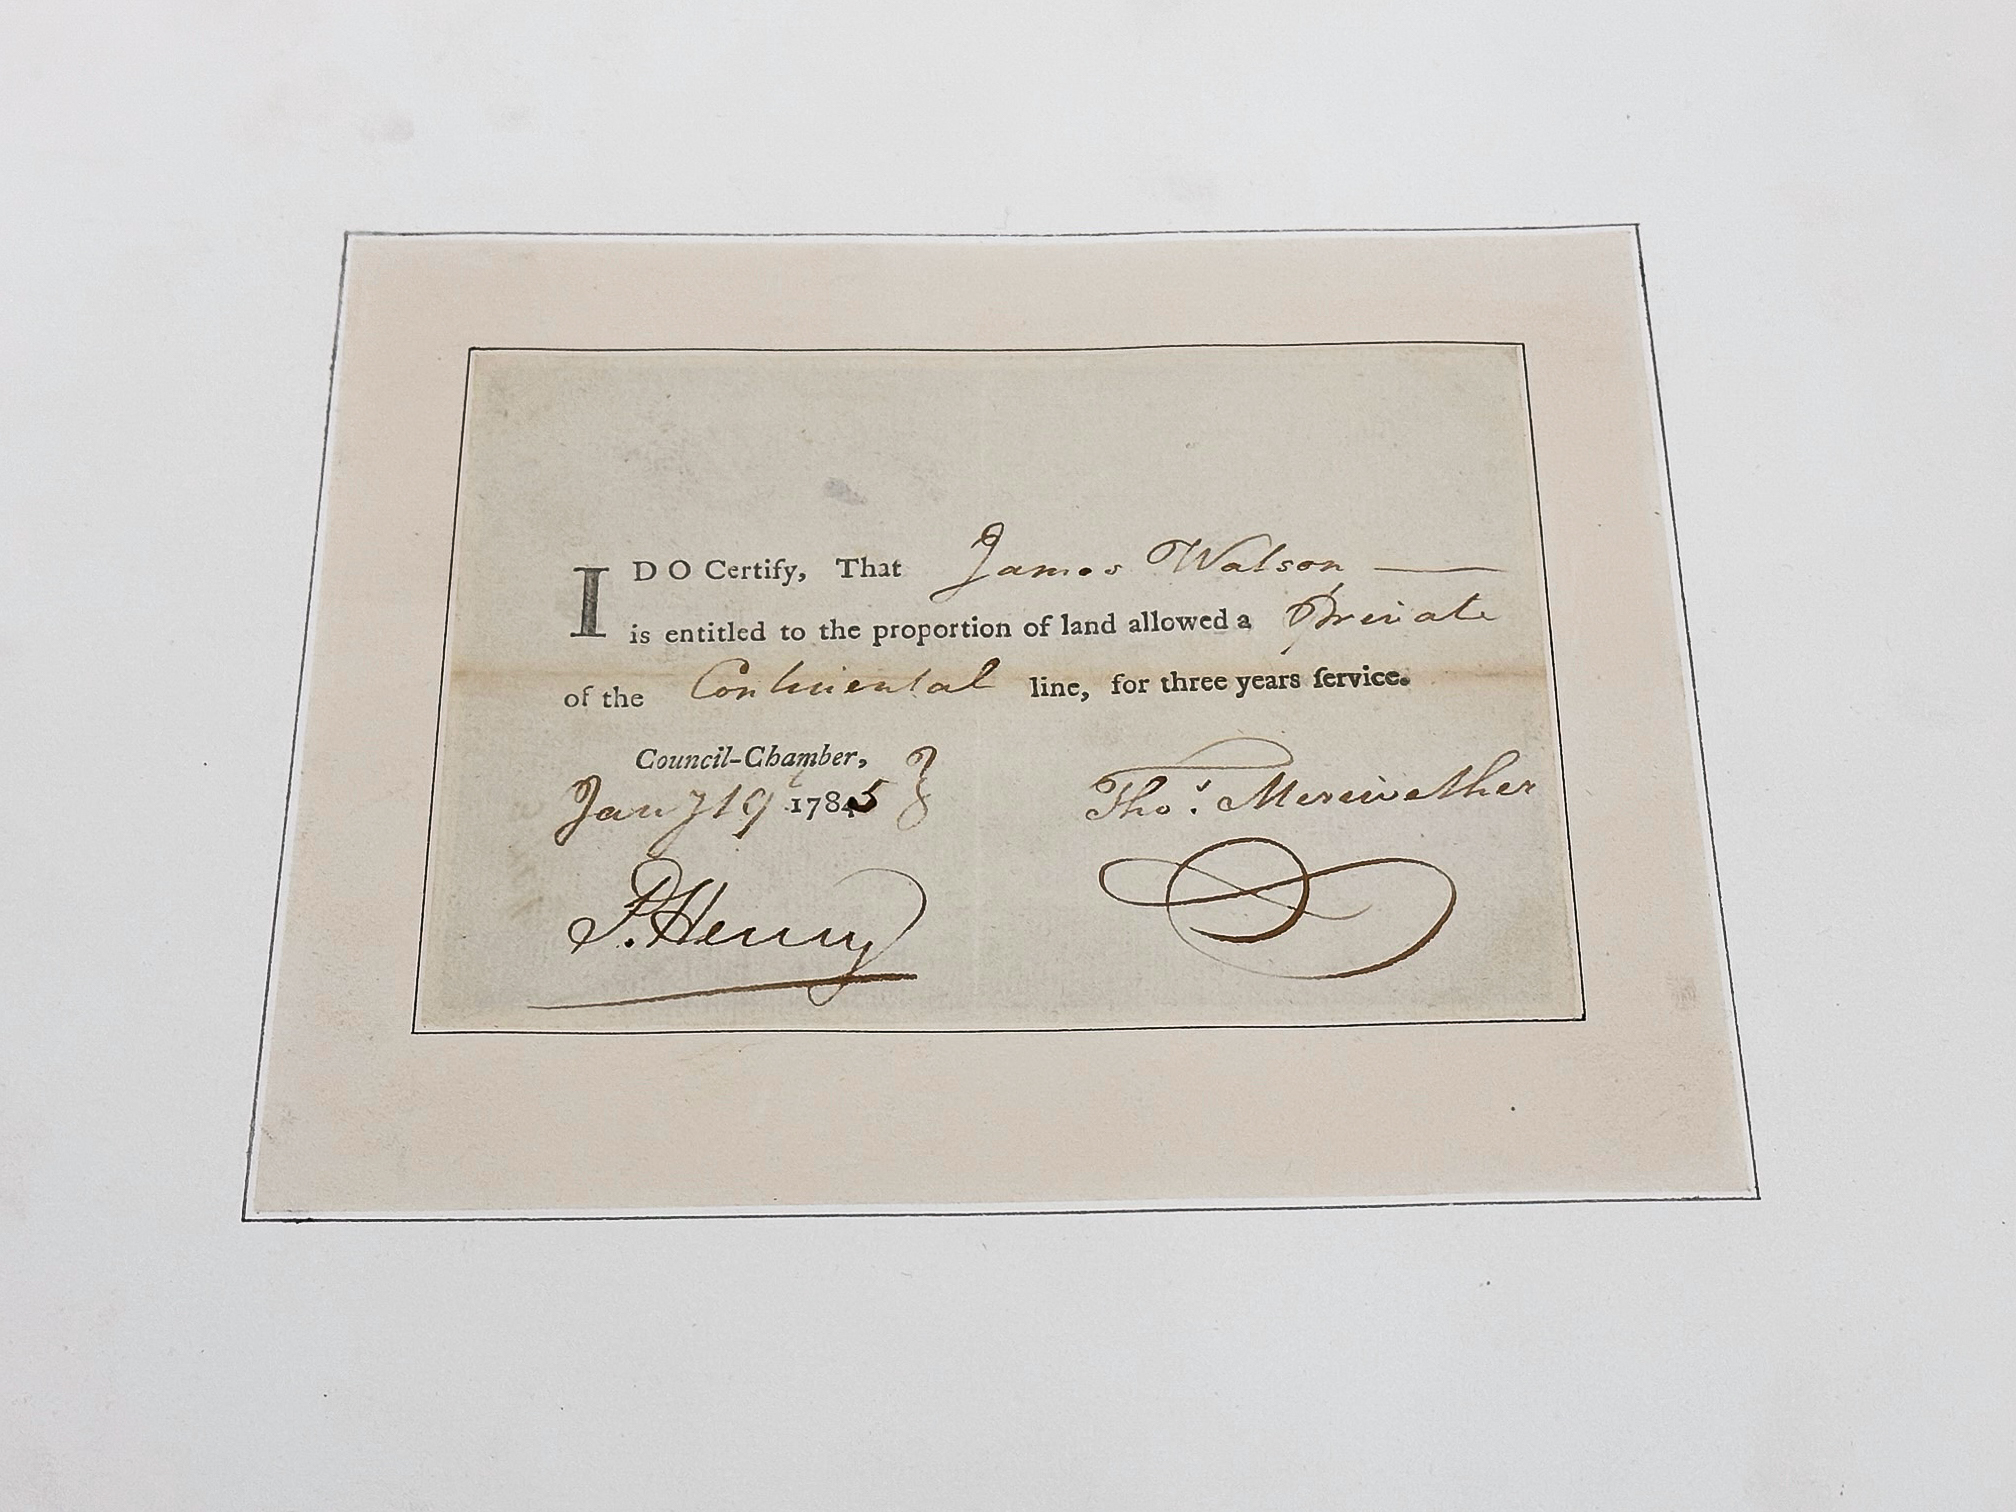 I DO Certify, That James Watson
is entitled to the proportion of land allowed a Private
of the Continental line, for three years ſervice.
Council-Chamber,
Jany 19 1785 Thos. Meriwether
P. Henry